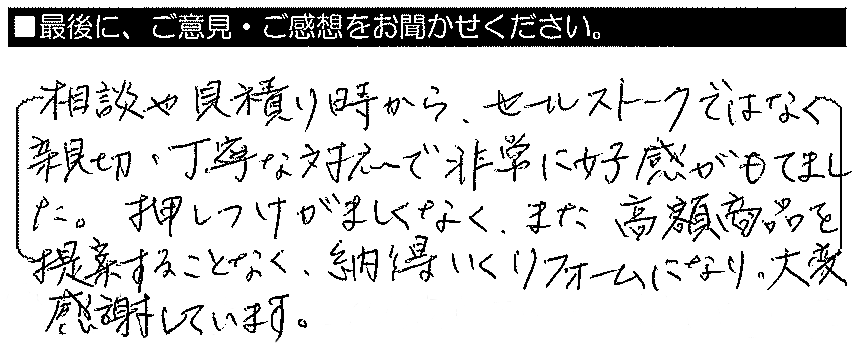 ■最後に、ご意見・ご感想をお聞かせください。
相談や見積り時から、セールストークではなく
親切・丁寧な対応で非常に好感がもてまし
た。押しつけがましくなく、また高額商品を
提案することなく、納得いくリフォームになり。大変
感謝しています。